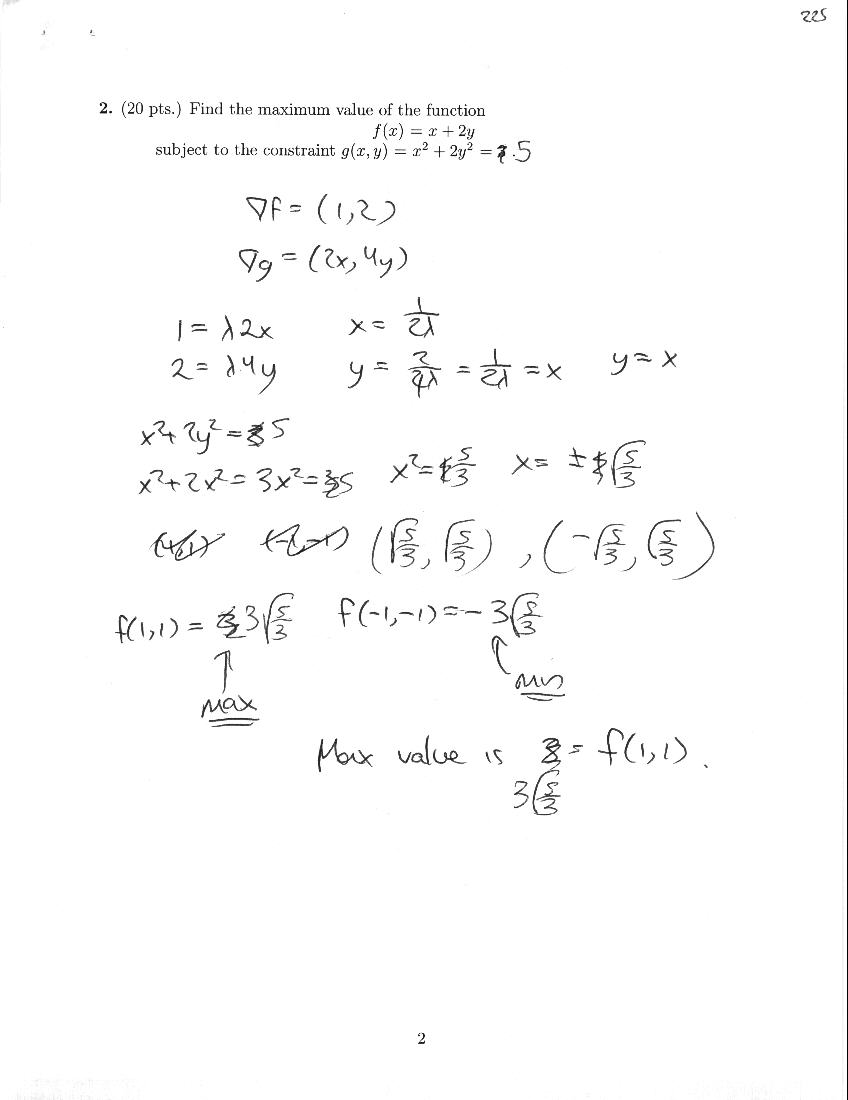 225
2. (20 pts.) Find the maximum value of the function
f(x) = x + 2y
subject to the constraint g(x, y) = x² + 2y² = 5
∇f = (1,2)
∇g = (2x, 4y)
1 = λ2x x = 1/2λ
2 = λ4y y = 2/4λ = 1/2λ = x y = x
x² + 2y² = 5
x² + 2x² = 3x² = 5 x² = 5/3 x = ± √5/3
(√5/3, √5/3) , (-√5/3, √5/3)
f(1,1) = 3√5/3 f(-1,-1) = - 3√5/3
max min
Max value is = f(1,1).
3√5/3
2